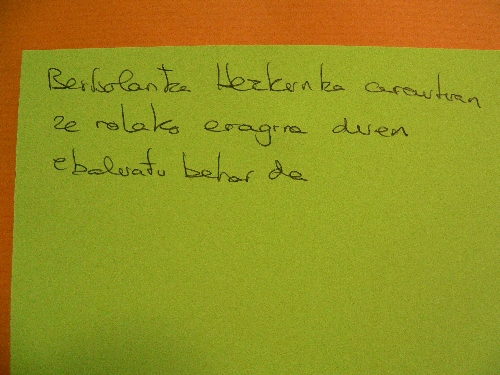 Berbolantza Hezkuntza arautuan
ze nolako eragina duen
ebaluatu behar da